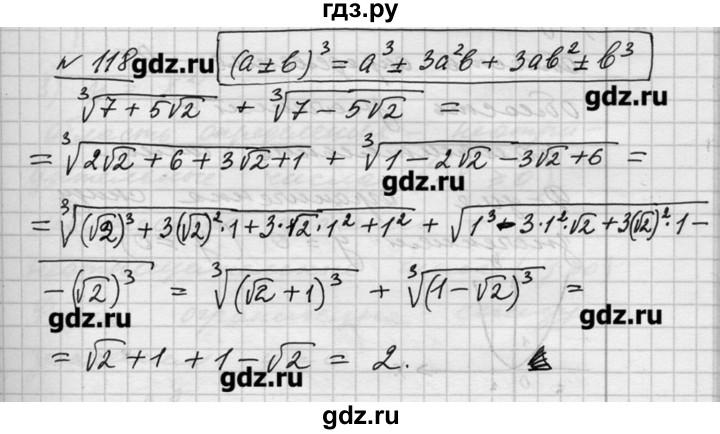 гдз.ру
№ 118 gdz.ru (a ± b)³ = a³ ± 3a²b + 3ab² ± b³
gdz.ru
∛(7 + 5√2) + ∛(7 − 5√2) =
= ∛(2√2 + 6 + 3√2 + 1) + ∛(1 − 2√2 − 3√2 + 6) =
gdz.ru
= ∛((√2)³ + 3(√2)²·1 + 3·√2·1² + 1²) + √(1³ − 3·1²·√2 + 3(√2)²·1 −
− (√2)³) = ∛((√2 + 1)³) + ∛((1 − √2)³) =
gdz.ru gdz.ru
= √2 + 1 + 1 − √2 = 2.
gdz.ru
gdz.ru